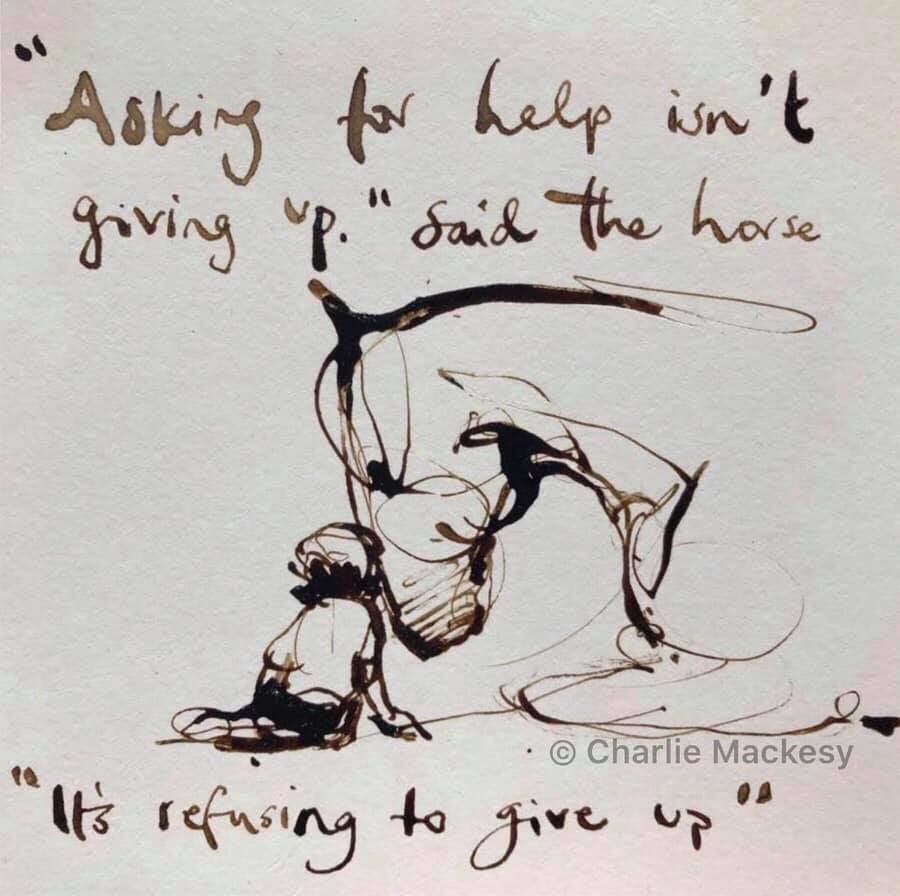 "Asking for help isn't
giving up." said the horse
© Charlie Mackesy
"It's refusing to give up"